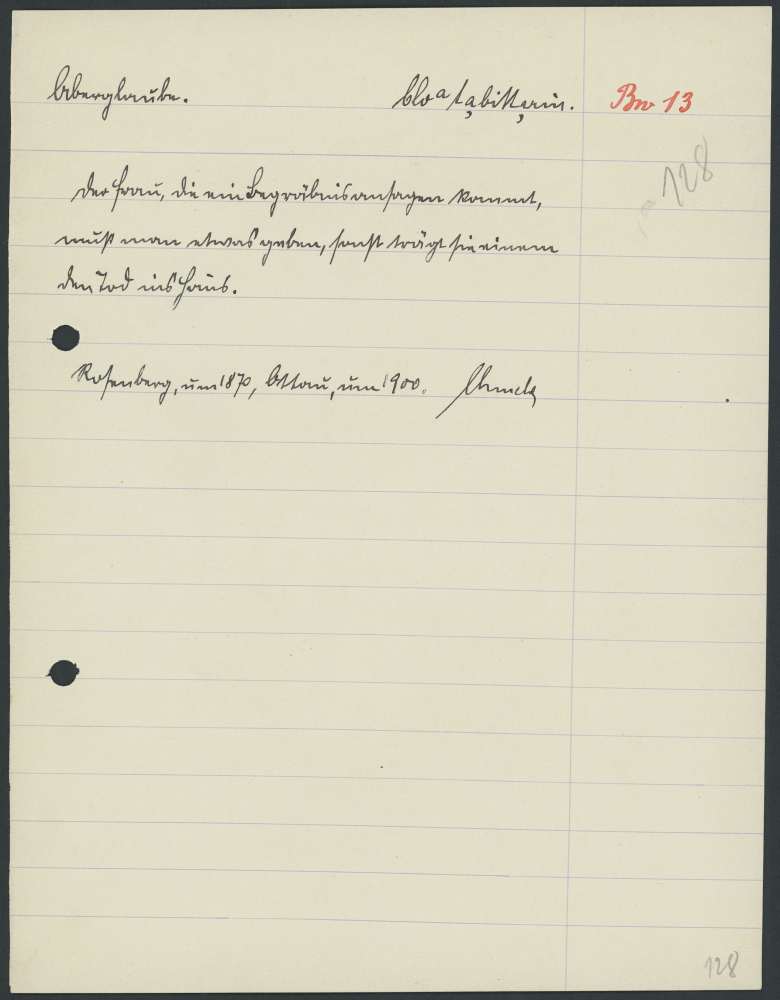 Aberglaube. bloᵃtạbittạrin. Bw 13
128
Der Frau, die ein Begräbnis ansagen kommt,
muß man etwas geben, sonst trägt sie einem
den Tod ins Haus.
Rosenberg, um 1870, Ottau, um 1900.
128